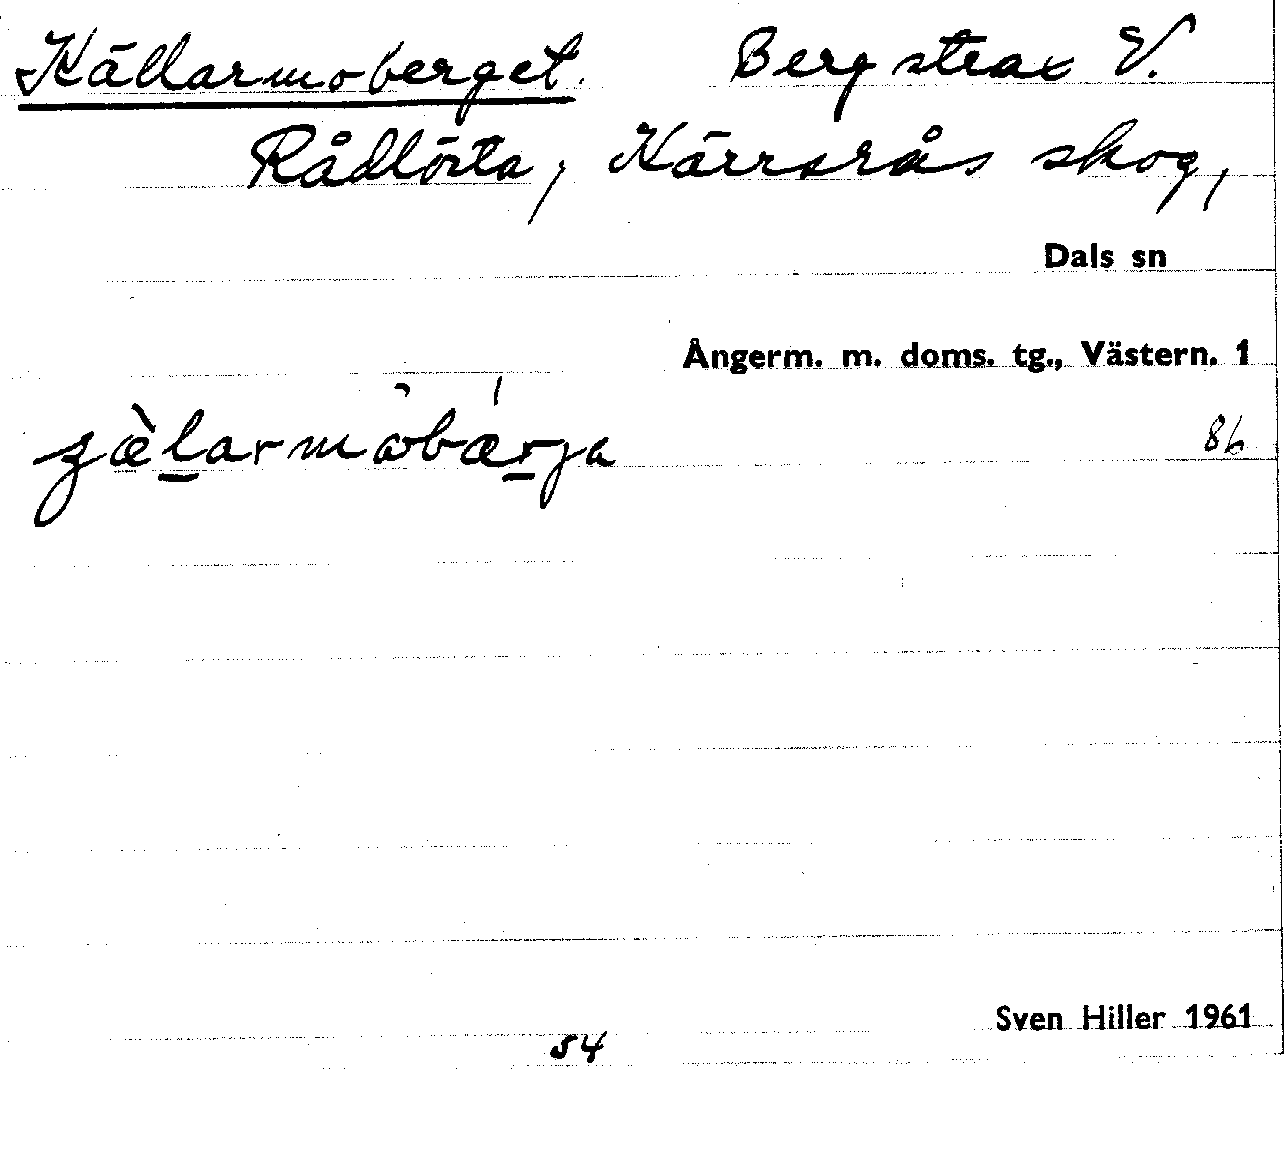 Källarmoberget. Bergstrax V.
Rådlösta, Kärrsrås skog,
Dals sn
Ångerm. m. doms. tg., Västern. 1
86
Sven Hiller 1961
54